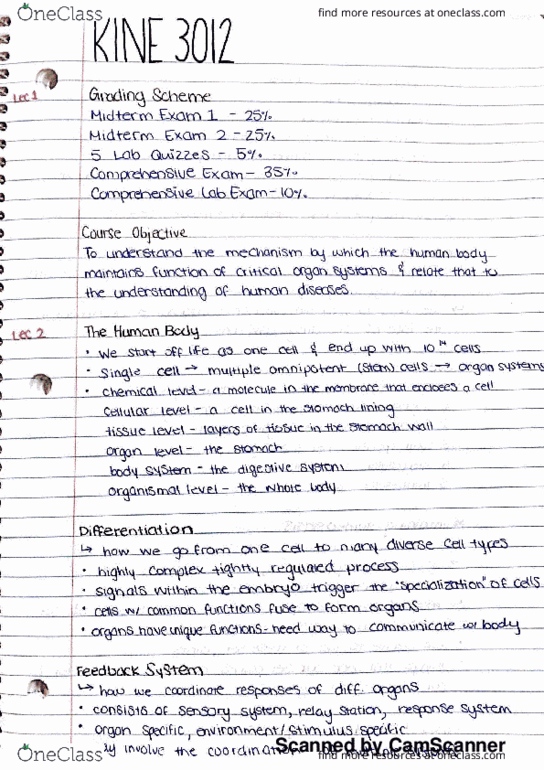 OneClass
find more resources at oneclass.com
KINE 3012
Lec 1
Grading Scheme
Midterm Exam 1 - 25%
Midterm Exam 2 - 25%
5 Lab Quizzes - 5%
Comprehensive Exam - 35%
Comprehensive Lab Exam - 10%
Course Objective
To understand the mechanism by which the human body
maintains function of critical organ systems & relate that to
the understanding of human diseases.
Lec 2
The Human Body
• We start off life as one cell & end up with 10¹⁴ cells
• Single cell → multiple omnipotent (stem) cells → organ systems
• chemical level - a molecule in the membrane that encloses a cell
cellular level - a cell in the stomach lining
tissue level - layers of tissue in the stomach wall
organ level - the stomach
body system - the digestive system
organismal level - the whole body
Differentiation
↳ how we go from one cell to many diverse cell types
• highly complex tightly regulated process
• signals within the embryo trigger the "specialization" of cells
• cells w/ common functions fuse to form organs
• organs have unique functions - need way to communicate w/ body
Feedback System
↳ how we coordinate responses of diff. organs
• consists of sensory system, relay station, response system
• organ specific, environment/stimulus specific
involve the coordination
Scanned by CamScanner
OneClass
find more resources at oneclass.com